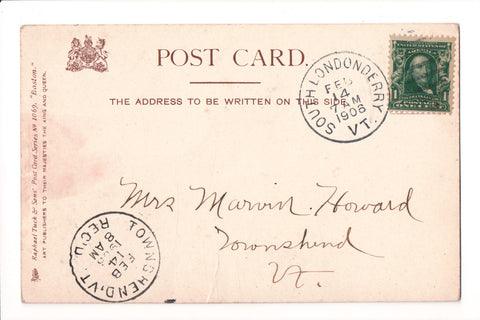 POST CARD.
THE ADDRESS TO BE WRITTEN ON THIS SIDE.
SOUTH LONDONDERRY
FEB
14
7 AM
1906
VT.
Mrs Marvin. Howard
Townshend
Vt.
TOWNSHEND, VT.
FEB
14
8 AM
REC'D.
Raphael Tuck & Sons' Post Card Series No 1069. "Boston."
ART PUBLISHERS TO THEIR MAJESTIES THE KING AND QUEEN.